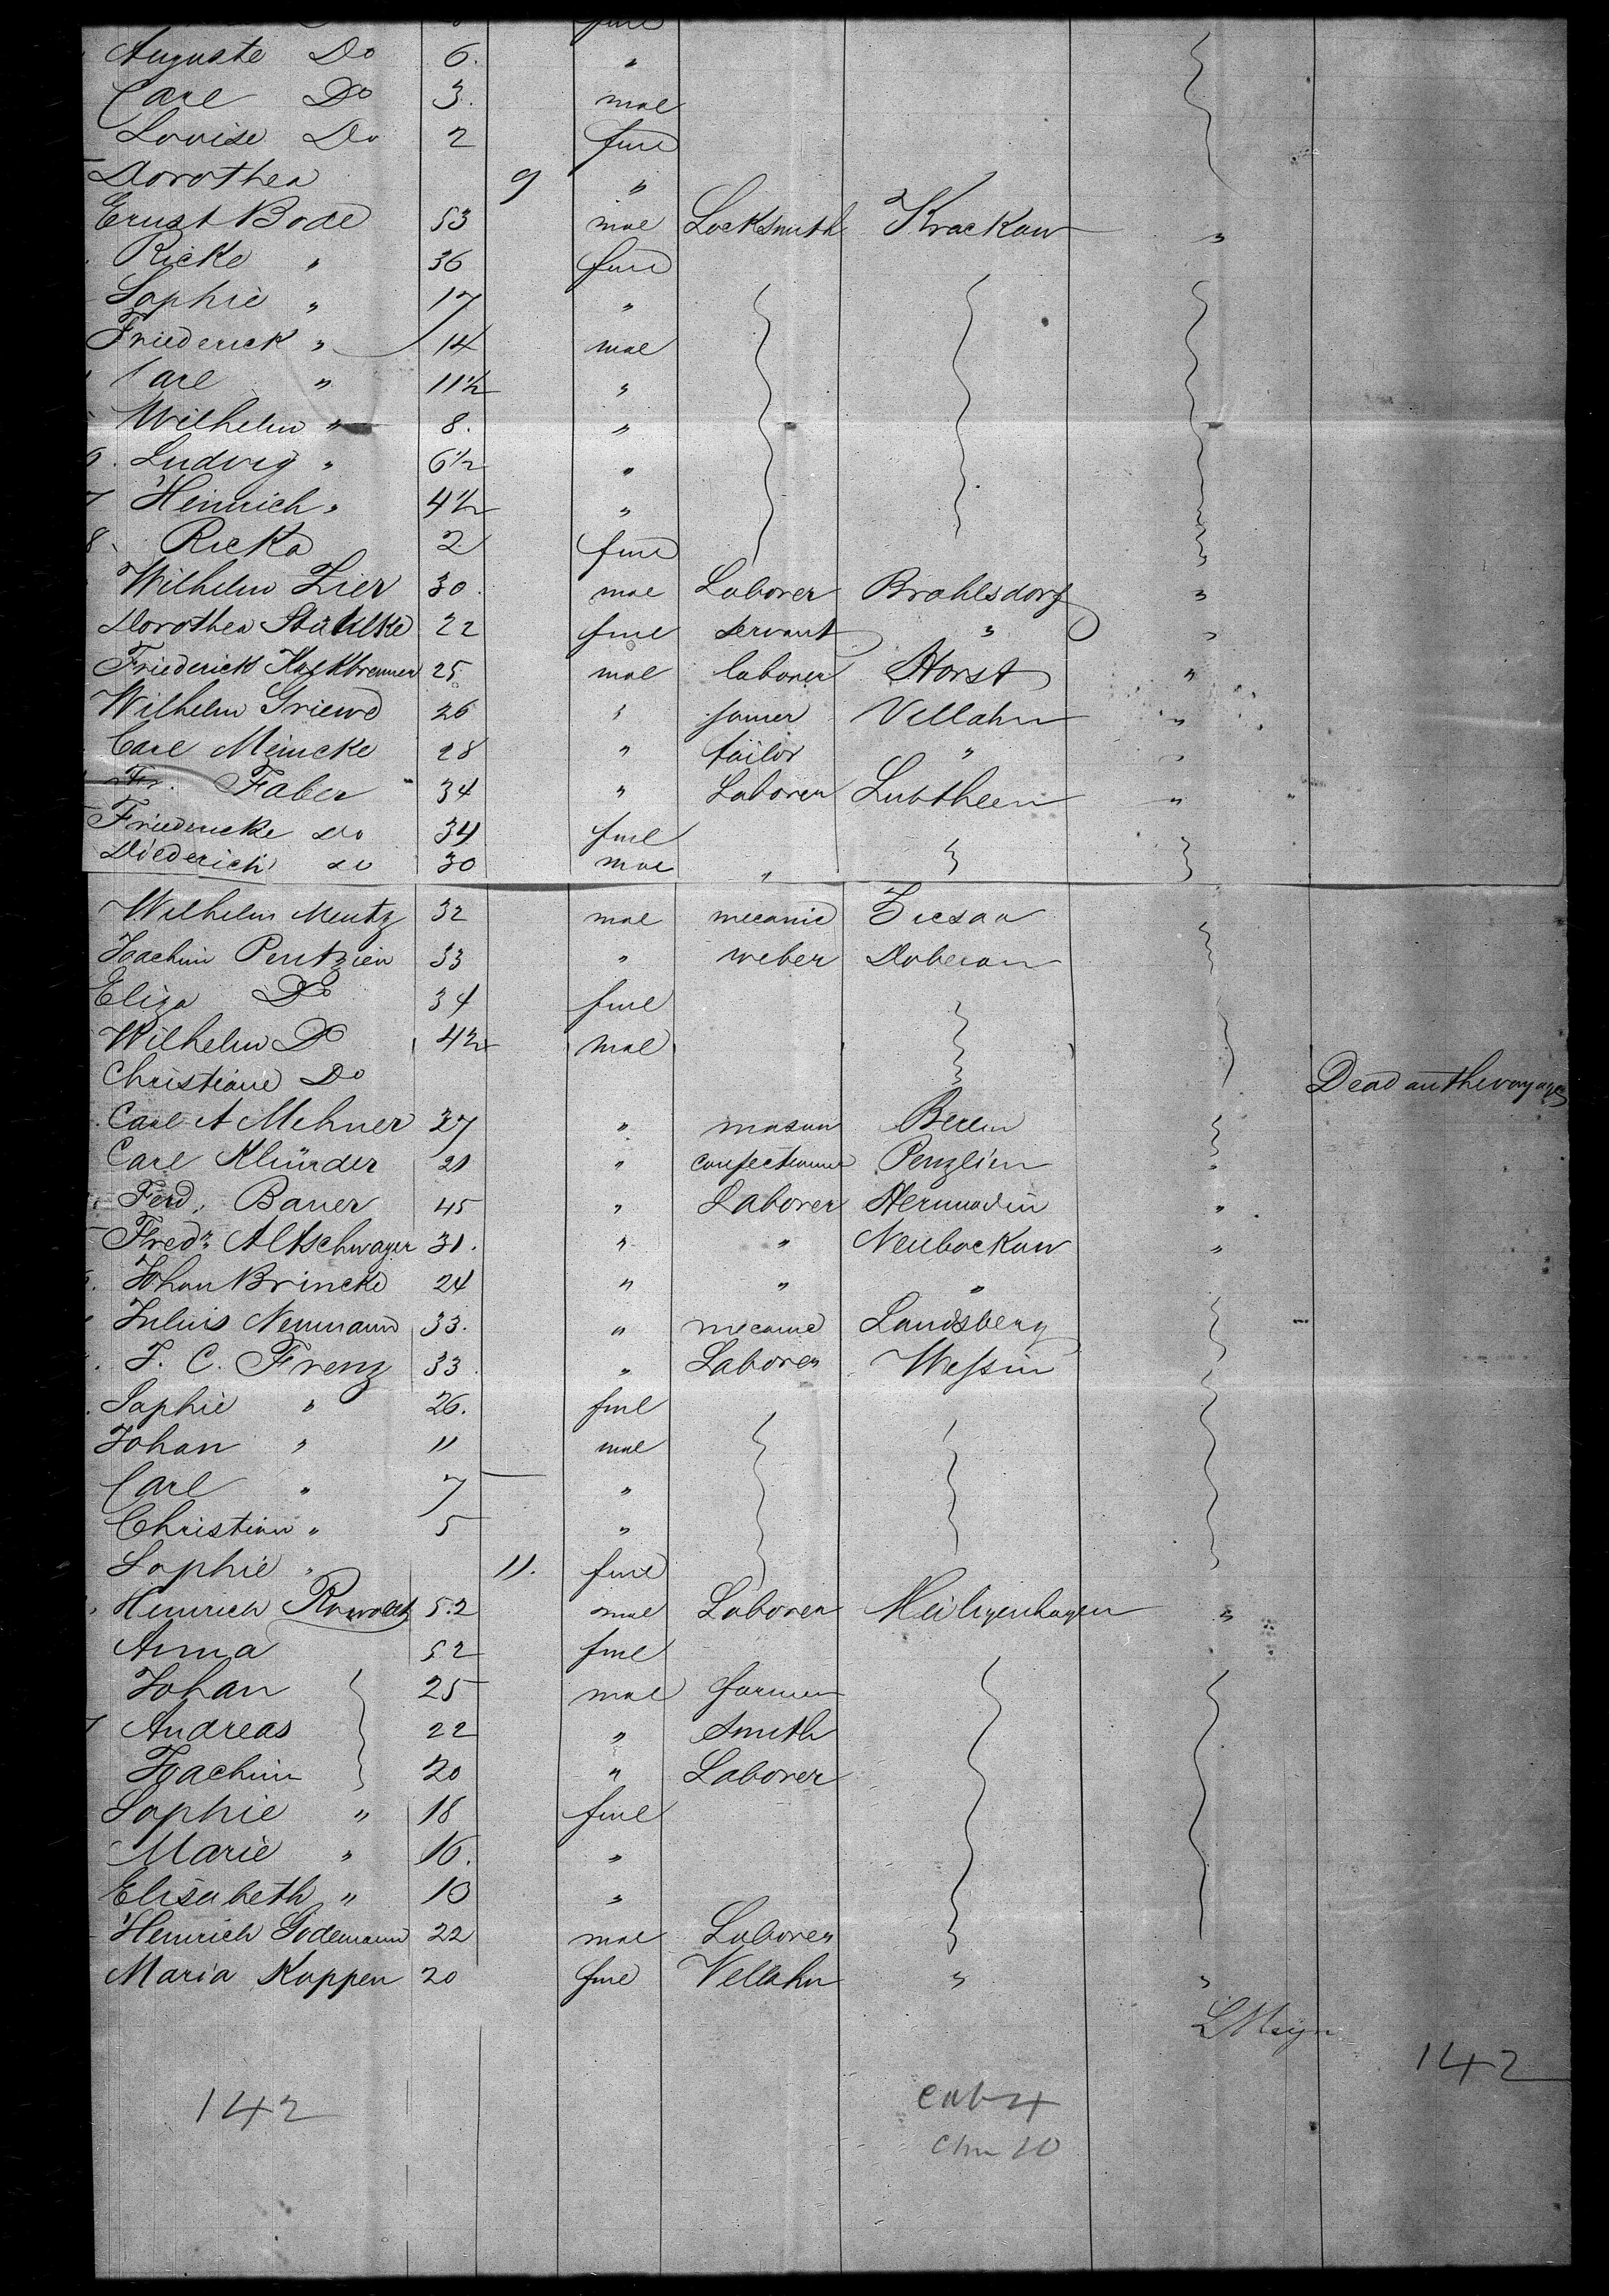 Auguste Do 6. "
Carl Do 3. mal
Louise Do 2 fml
Dorothea 9 "
Ernst Bode 53 mal Locksmith Krackow "
Ricke " 36 fml
Sophie " 17 "
Friederick " 14 mal
Carl " 11½ "
Wilhelm " 8. "
Ludvig " 6½ "
7 Heinrich " 4½ "
8 Ricka 2 fml
Wilhelm Zier 30. mal Laborer Brahlsdorf "
Dorothea Stühlke 22 fml servant " "
Friederick Kalkbrenner 25 mal laborer Horst "
Wilhelm Griewe 26 " Vellahn "
Carl Meincke 28 " tailor " "
Fr. Faber 34 " Laborer Lubtheen "
Friedericke Do 34 fml
Diederich do 30 mal "
Wilhelm Mentz 32 mal mecanic
Joachim Pentzien 33 " weber Doberan
Eliza Do 34 fml
Wilhelm Do 4½ mal
Christiane Do Dead on the voyage
Carl A Mehner 27 " mason
Carl Klünder 21 " confectionner Penzlien "
Ferd. Bauer 45 " Laborer "
Fredr. Altschwager 31. " " Neubockow "
Johan Brincke 24 " " "
Julius Neumann 33. " mecanic Landsberg
J. C. Frenz 33. " Laborer Wessin
Sophie " 26. fml
Johan " 11 mal
Carl " 7 "
Christian " 5 "
Sophie " 11. fml
Heinrich Rowoldt 52 mal Laborer Heiligenhagen "
Anna 52 fml
Johan 25 mal farmer
7 Andreas 22 " Smith
Joachim 20 " Laborer
Sophie " 18 fml
Marie " 16. "
Elisabeth " 10 "
Heinrich Godemann 22 mal Laborer
Maria Koppen 20 fml Vellahn " "
142
142
cab 4
chn 10